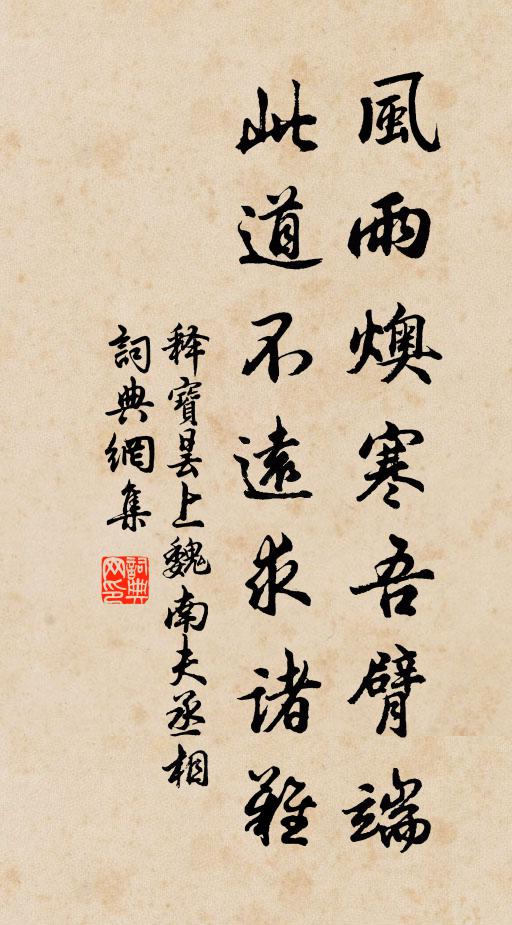 風雨燠寒吾臂端
此道不遠求諸難
释寶曇上魏南夫丞相
詞典網集
詞典网印